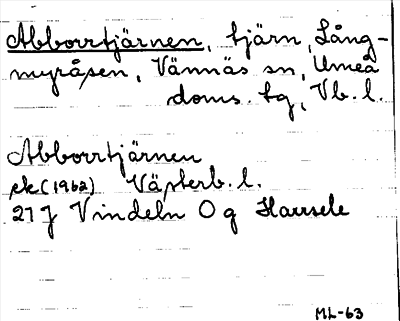 Abborrtjärnen, tjärn, Lång-
myråsen, Vännäs sn, Umeå
doms. tg, Vb. l.
Abborrtjärnen
ek (1962) Västerb. l.
21 J Vindeln O g Harrsele
ML-63